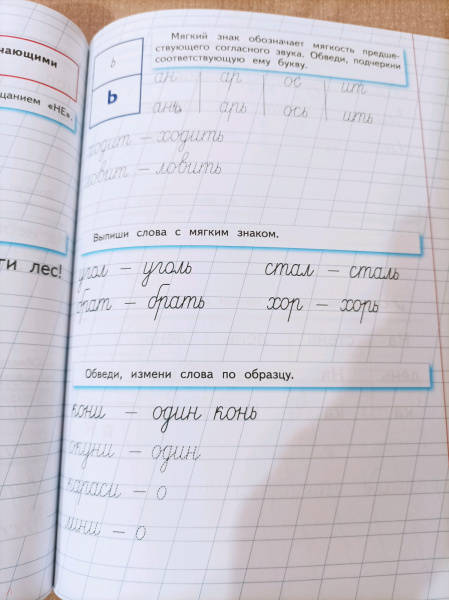 ающими
щанием «НЕ».
ти лес!
Мягкий знак обозначает мягкость предше-
ствующего согласного звука. Обведи, подчеркни
соответствующую ему букву.
ь
ь
ан ар ос ит
ань арь ось ить
ходит – ходить
ловит – ловить
Выпиши слова с мягким знаком.
угол – уголь стал – сталь
брат – брать хор – хорь
Обведи, измени слова по образцу.
кони – один конь
окуни – один
караси – о
лини – о